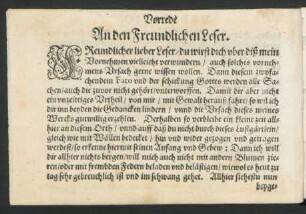 Vorrede
An den Freundlichen Leser.
FReundlicher lieber Leser / du wirst dich vber diß mein
Vornehmen vielleicht verwundern / auch solches vorneh-
mens Vrsach gerne wissen wollen. Dann diesem zwyfa-
chendem Fato vnd der schickung Gottes werden alle Sa-
chen / auch die zuvor nicht gehört / vnterworffen. Damit dir aber nicht
ein vnzeitiges Vrtheil / von mir / mit Gewalt herauß fahre / so wil ich
dir vm beyden die Gedancken lindern / vnnd die Vrsach dieses meines
Wercks gutwillig erzehlen. Derhalben so verbleibe ein kleine zeit all-
hier an diesem Orth / vnnd auff daß du nicht durch dieses Lustgärtlein /
gleich wie mit Wolcken bedecket / hin vnd wider gezogen vnd getragen
werdest / so erkenne hiermit seinen Anfang vnd Gebew; Dann ich will
dir allhier nichts bergen / will mich auch nicht mit andern Blumen zie-
ren / oder mit frembden Federn beladen vnd belästigen / wiewol es heut zu
tag sehr gebreuchlich ist vnd im schwang gehet. Allhier siehestu nun